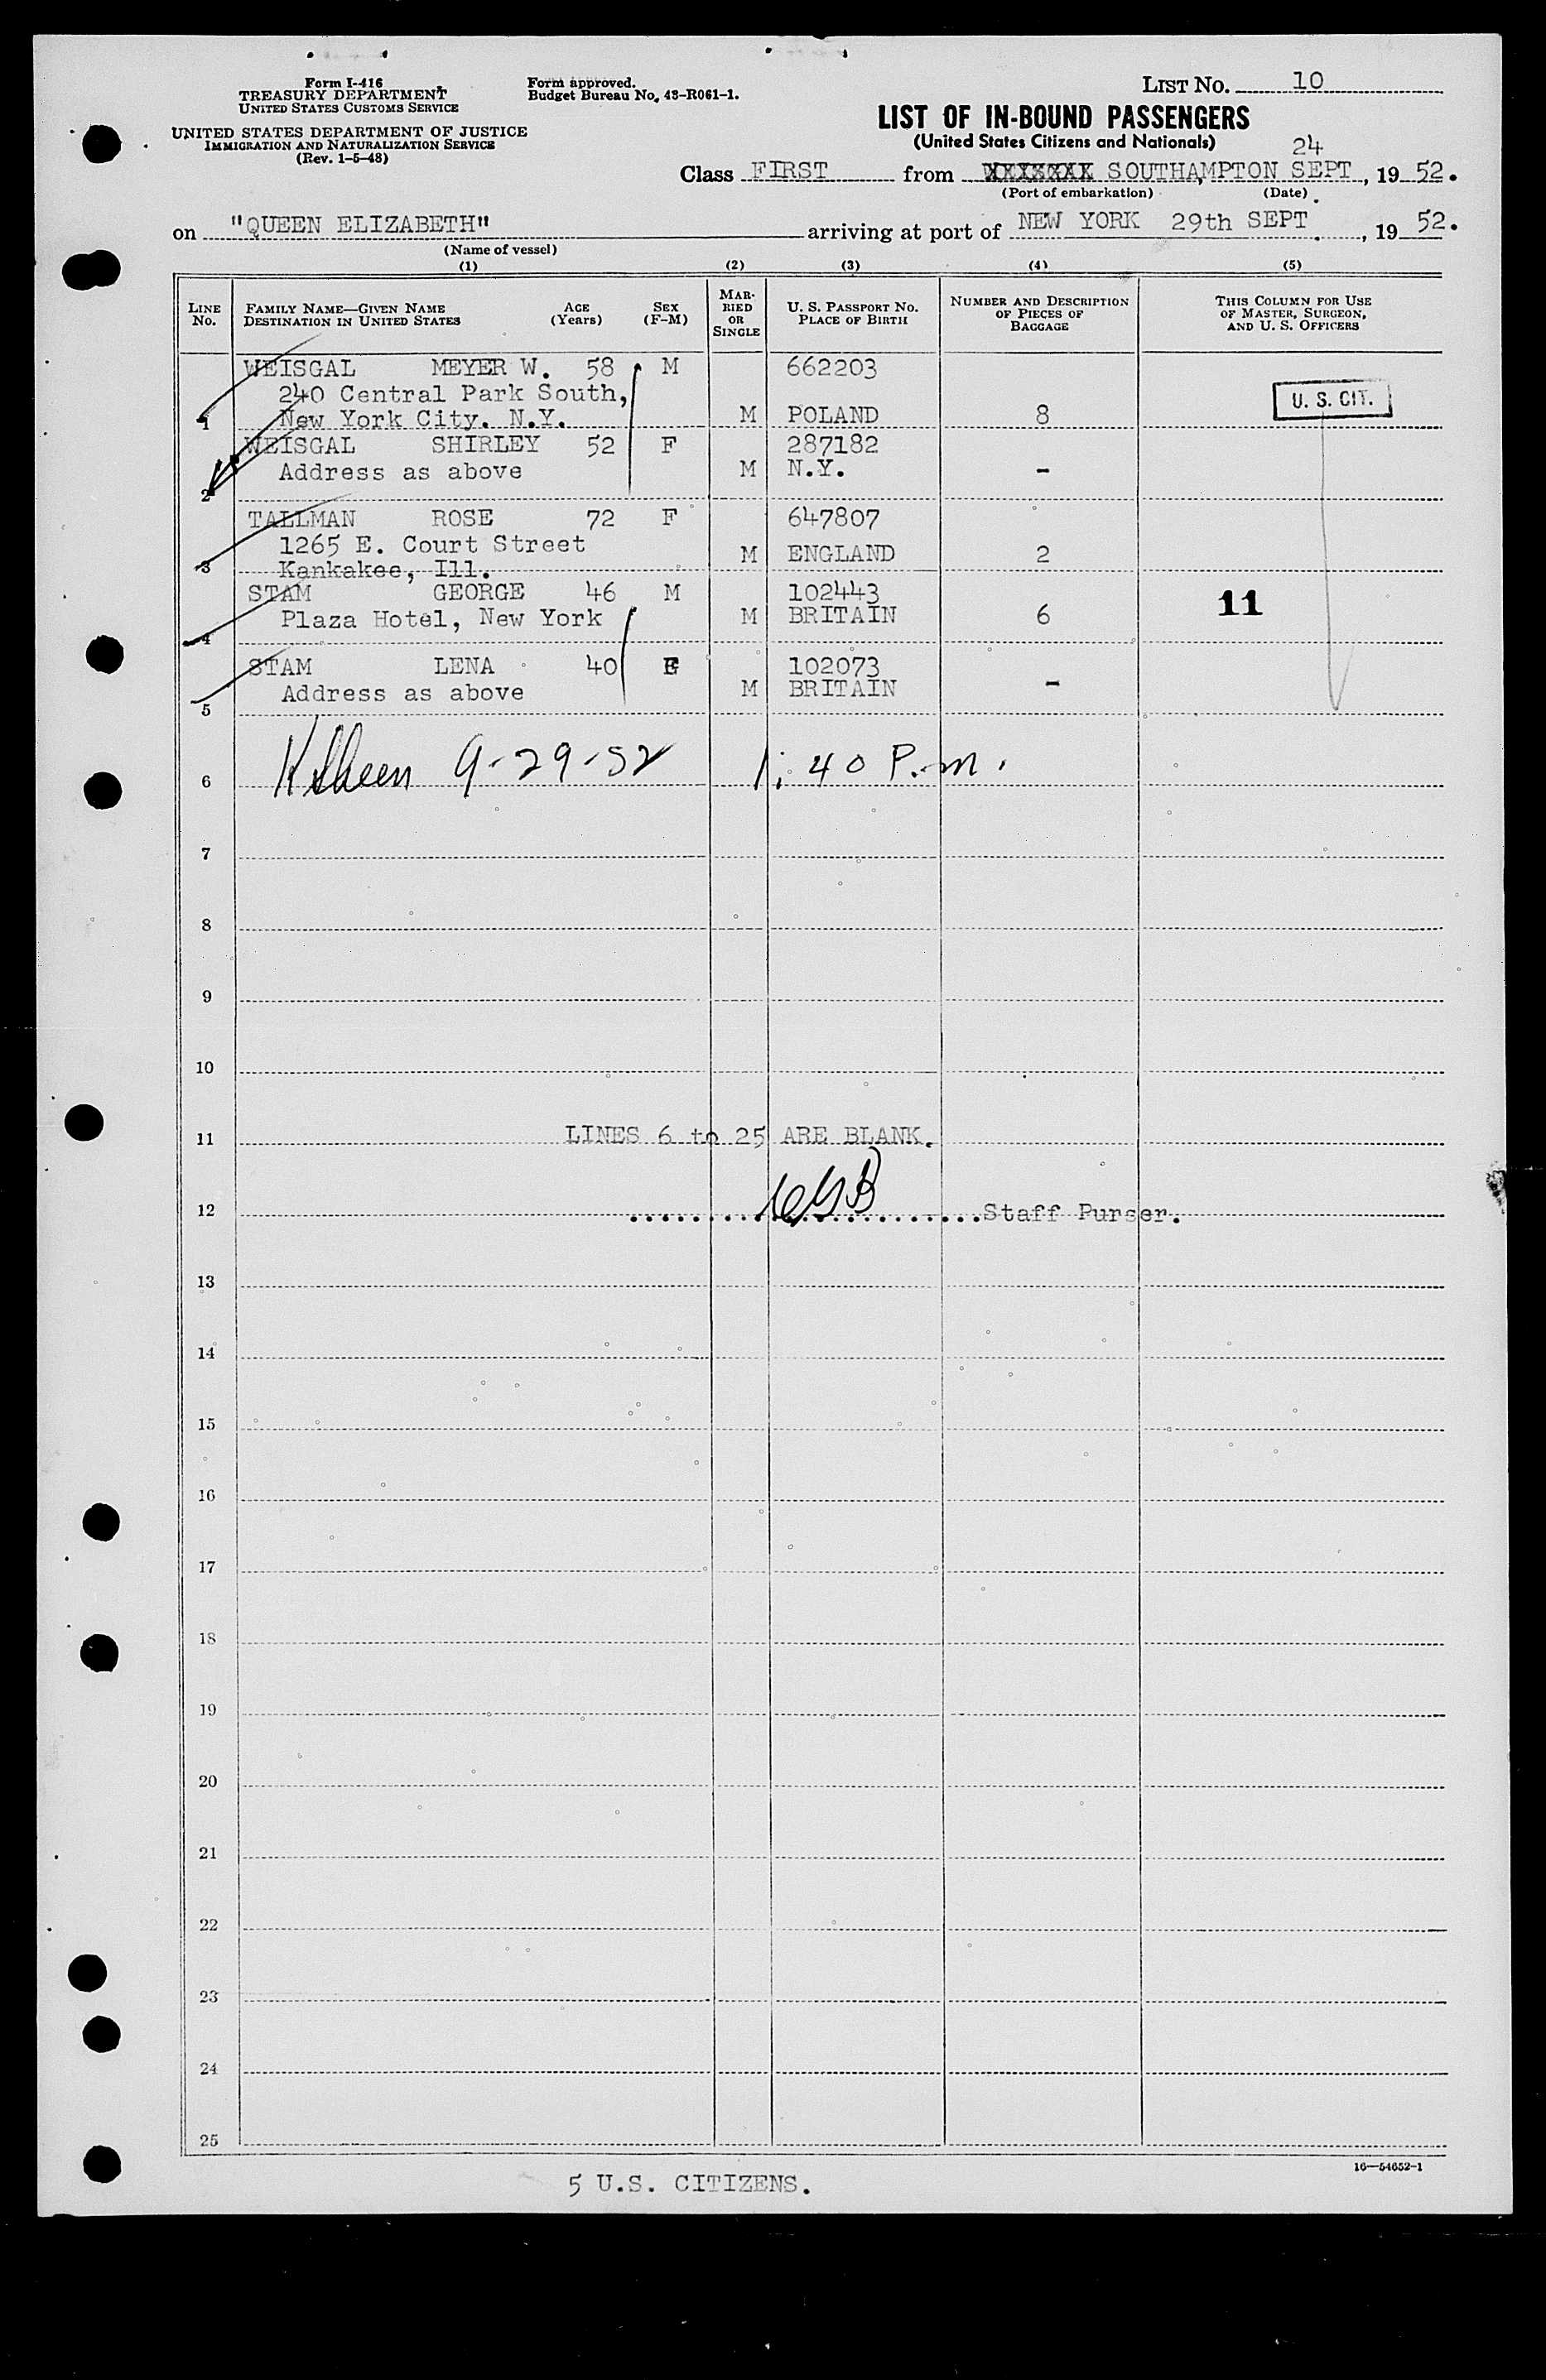 Form I-416
TREASURY DEPARTMENT
UNITED STATES CUSTOMS SERVICE
UNITED STATES DEPARTMENT OF JUSTICE
IMMIGRATION AND NATURALIZATION SERVICE
(Rev. 1-5-48)
Form approved.
Budget Bureau No. 43-R061-1.
LIST No. 10
LIST OF IN-BOUND PASSENGERS
(United States Citizens and Nationals)
24
Class FIRST from SOUTHAMPTON SEPT, 19 52.
(Port of embarkation) (Date)
on "QUEEN ELIZABETH" arriving at port of NEW YORK 29th SEPT., 19 52.
(Name of vessel)
(1) (2) (3) (4) (5)
LINE No. FAMILY NAME—GIVEN NAME DESTINATION IN UNITED STATES AGE (Years) SEX (F-M) MARRIED OR SINGLE U. S. PASSPORT No. PLACE OF BIRTH NUMBER AND DESCRIPTION OF PIECES OF BAGGAGE THIS COLUMN FOR USE OF MASTER, SURGEON, AND U. S. OFFICERS
WEISGAL MEYER W. 58 M 662203
240 Central Park South,
U. S. CIT.
1 New York City. N.Y. M POLAND 8
WEISGAL SHIRLEY 52 F 287182
Address as above M N.Y. -
2
TALLMAN ROSE 72 F 647807
1265 E. Court Street M ENGLAND 2
3 Kankakee, Ill.
STAM GEORGE 46 M 102443
Plaza Hotel, New York M BRITAIN 6 11
4
STAM LENA 40 F 102073
Address as above M BRITAIN -
5
6 9-29-52 1:40 P.m.
7
8
9
10
11 LINES 6 to 25 ARE BLANK.
12 Staff Purser.
13
14
15
16
17
18
19
20
21
22
23
24
25
16—54652-1
5 U.S. CITIZENS.